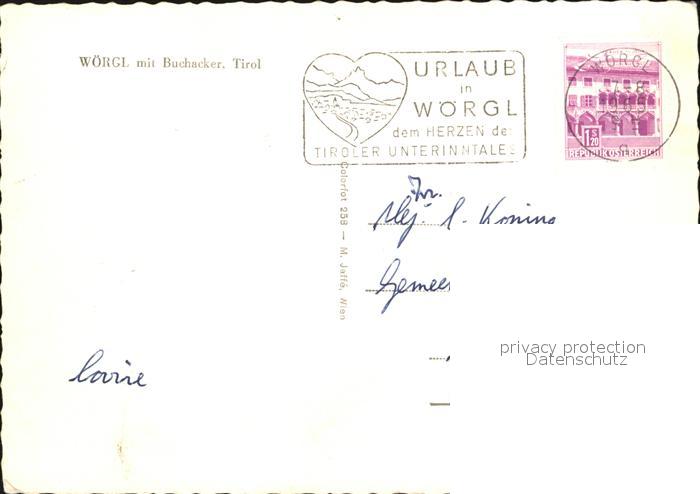 WÖRGL mit Buchacker, Tirol
URLAUB
in
WÖRGL
dem HERZEN des
TIROLER UNTERINNTALES
WÖRGL
7-8
1 S 20
REPUBLIK ÖSTERREICH
Colorfot 258 — M. Jaffé, Wien
Jr.
Mej. C. Konins
Gemee
privacy protection
Datenschutz